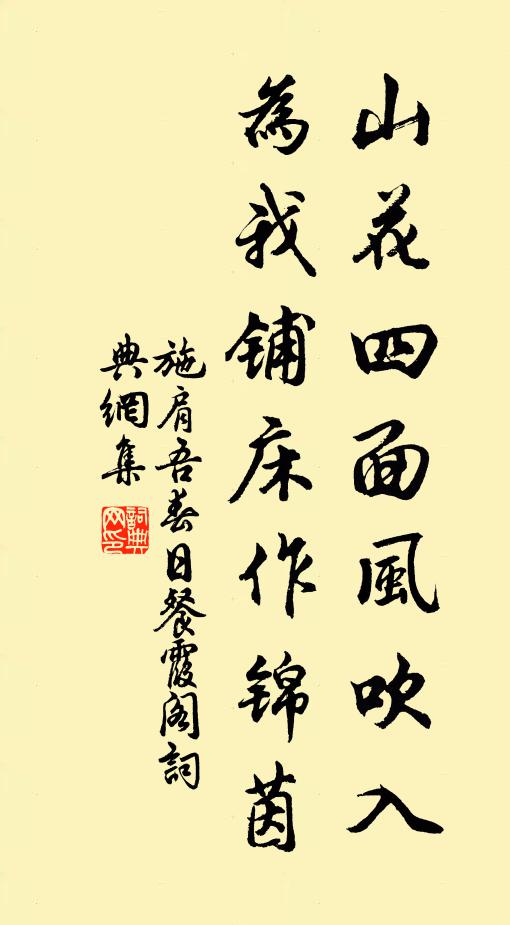 山花四面風吹入
為我铺床作锦茵
施肩吾春日餐霞阁詞
典網集
詞典
网印